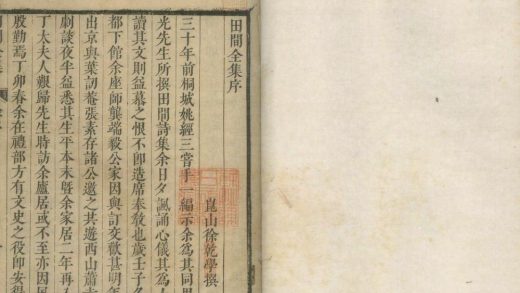 田間全集序
崑山徐乾學撰
三十年前桐城姚經三嘗手一編示余爲其同
光先生所撰田間詩集余日夕諷誦心儀其爲人
讀其文則益慕之恨不卽造席奉敎也歲壬子
都下館余座師龔端毅公家因與訂交歡甚明年
出京與葉訒菴張素存諸公邀之共遊西山蕭寺
劇談夜半益悉其生平本末暨余家居二年再入
丁太夫人艱歸先生時訪余廬居或不至亦因風
殷勤焉丁卯春余在禮部方有文史之役卽安得
田間全集